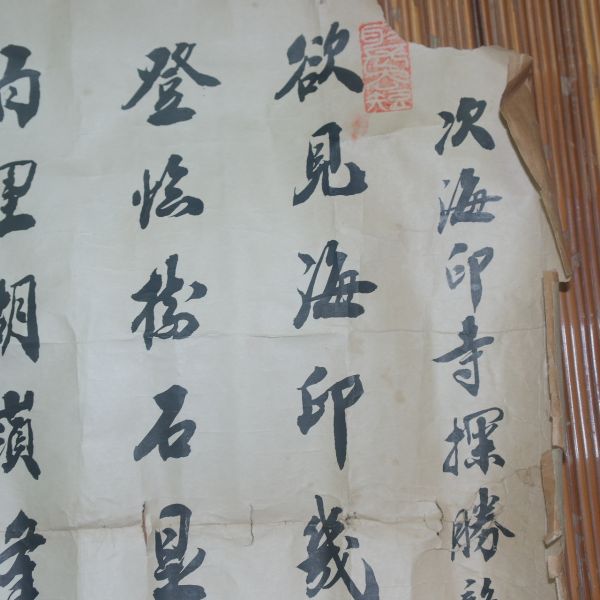 次海印寺探勝韵
欲見海印幾
登臨樹石是
雨里胡嶺峯